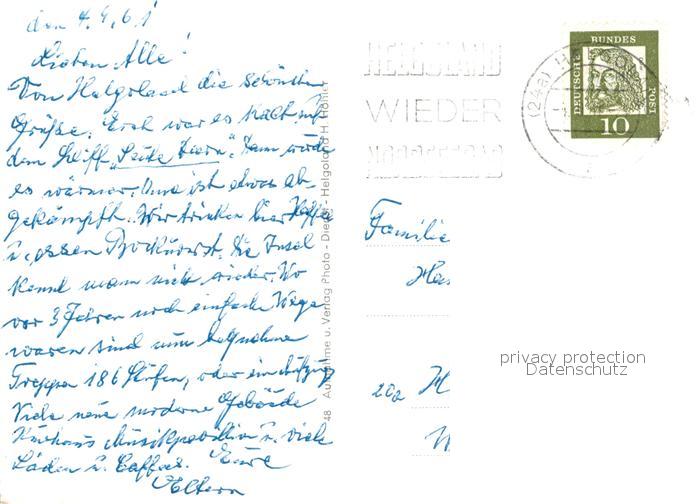 den 4.9.61
Lieben Alle!
Von Helgoland die schönsten
Grüße. Erst war es kalt auf
dem Schiff "Seute Deern". Dann wurde
es wärmer. Oma ist etwas ab-
gekämpft. Wir trinken hier Kaffee
u. essen Bockwurst. Die Insel
kennt mann nich wieder. Wo
vor 3 Jahren noch einfache Wege
waren sind nun bequeme
Treppen 186 Stufen, oder ein Aufzug
Viele neue moderne Gebäude
Kurhaus Musikpavillion u. viele
Läden u. Caffees. Eure
Eltern
48 Aufnahme u. Verlag Photo - Helgoland H.
HELGOLAND
WIEDER
NORDSEEBAD
(24a)
DEUTSCHE
BUNDES
POST
10
Familie
Has
20a H
W
privacy protection
Datenschutz